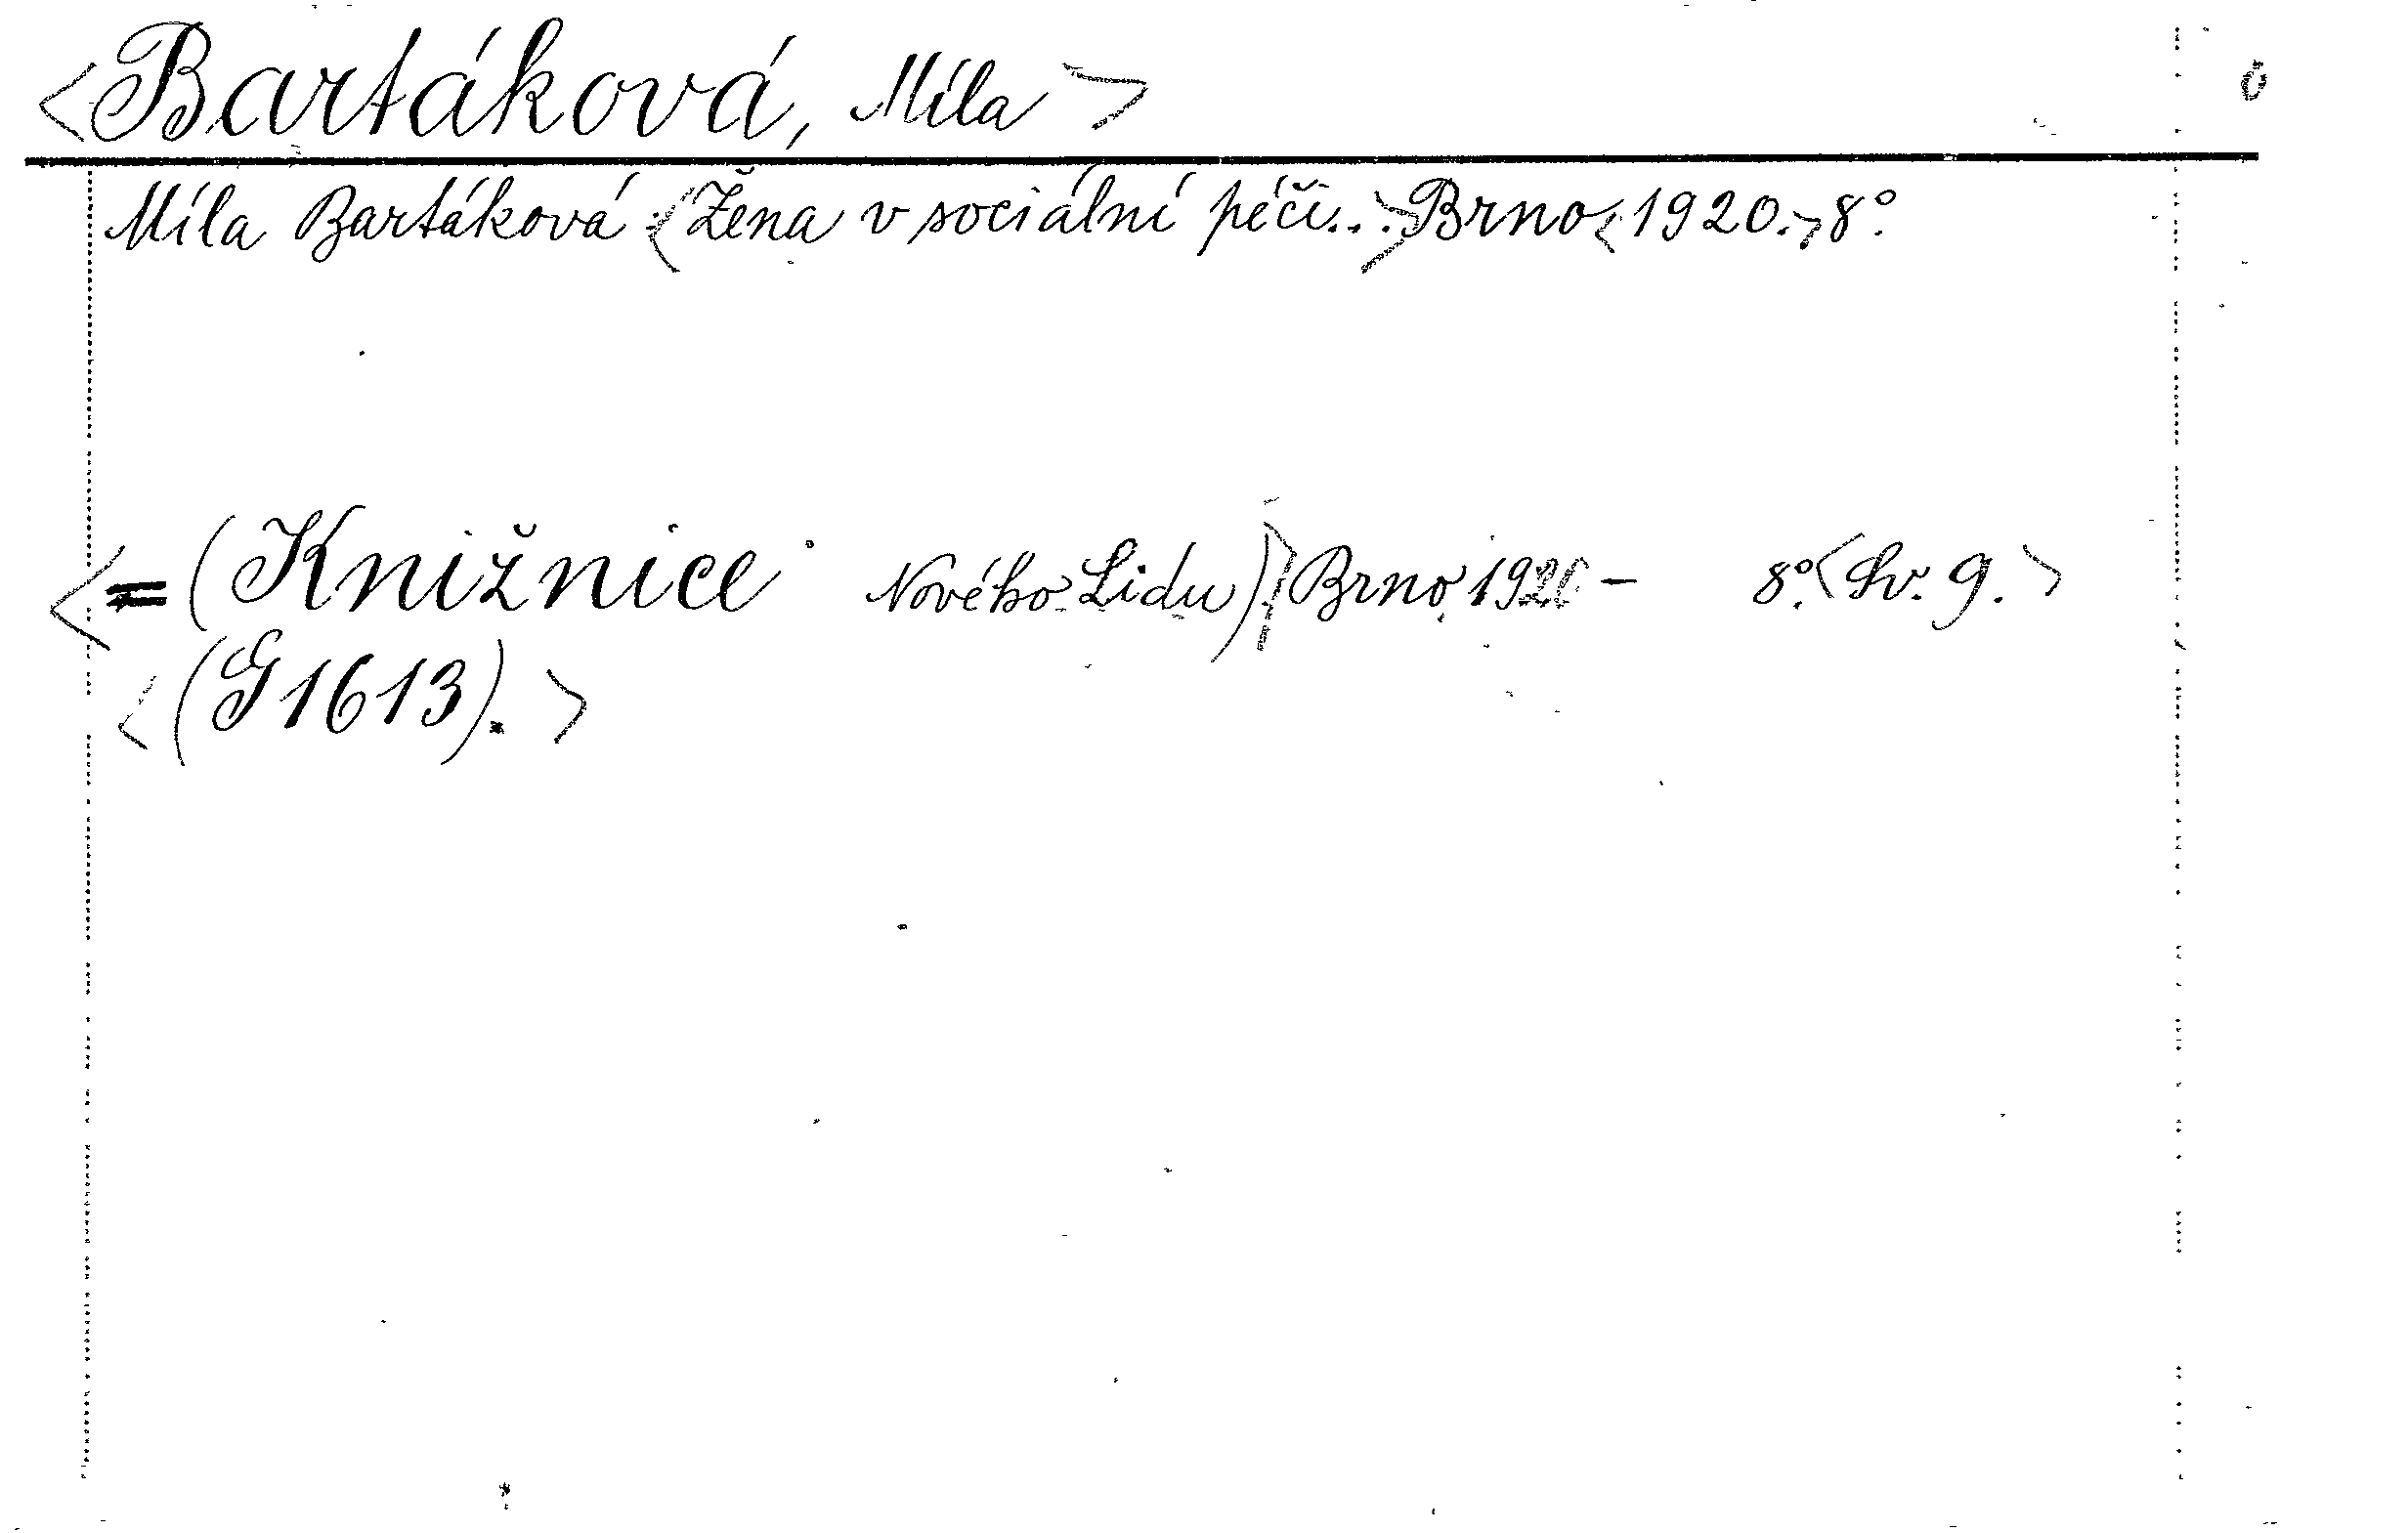 <Bartáková, Míla> ö
Míla Bartáková: <Žena v sociální péči...> Brno <1920.> 8°.
<= (Knižnice Nového Lidu).> Brno, 1920 - 8°. <Sv. 9.>
<(G 1613).>